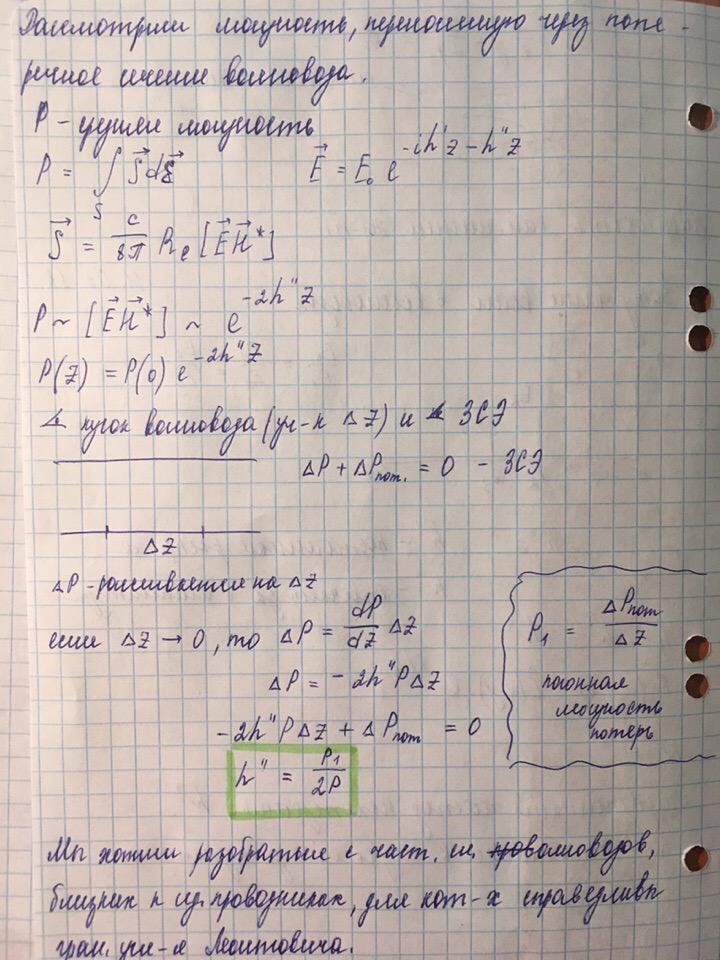 Рассмотрим мощность, переносимую через попе-
речное сечение волновода.
P - средняя мощность
P = ∫_S S⃗ dS⃗ E⃗ = E₀ e^{-ih'z - h''z}
S⃗ = c/8π Re [E⃗H⃗*]
P ~ [E⃗H⃗*] ~ e^{-2h''z}
P(z) = P(0) e^{-2h''z}
∡ кусок волновода (уч-к Δz) и ∡ ЗСЭ
ΔP + ΔPпот. = 0 - ЗСЭ
Δz
ΔP - рассеивается на Δz
если Δz → 0, то ΔP = dP/dz Δz
ΔP = -2h''PΔz
-2h''PΔz + ΔPпот = 0
h'' = P₁/2P
P₁ = ΔPпот/Δz
погонная
мощность
потерь
Мы хотим разобраться с част. сл. волноводов,
близких к ид. проводникам, для кот-х справедливы
гран. усл-я Леонтовича.